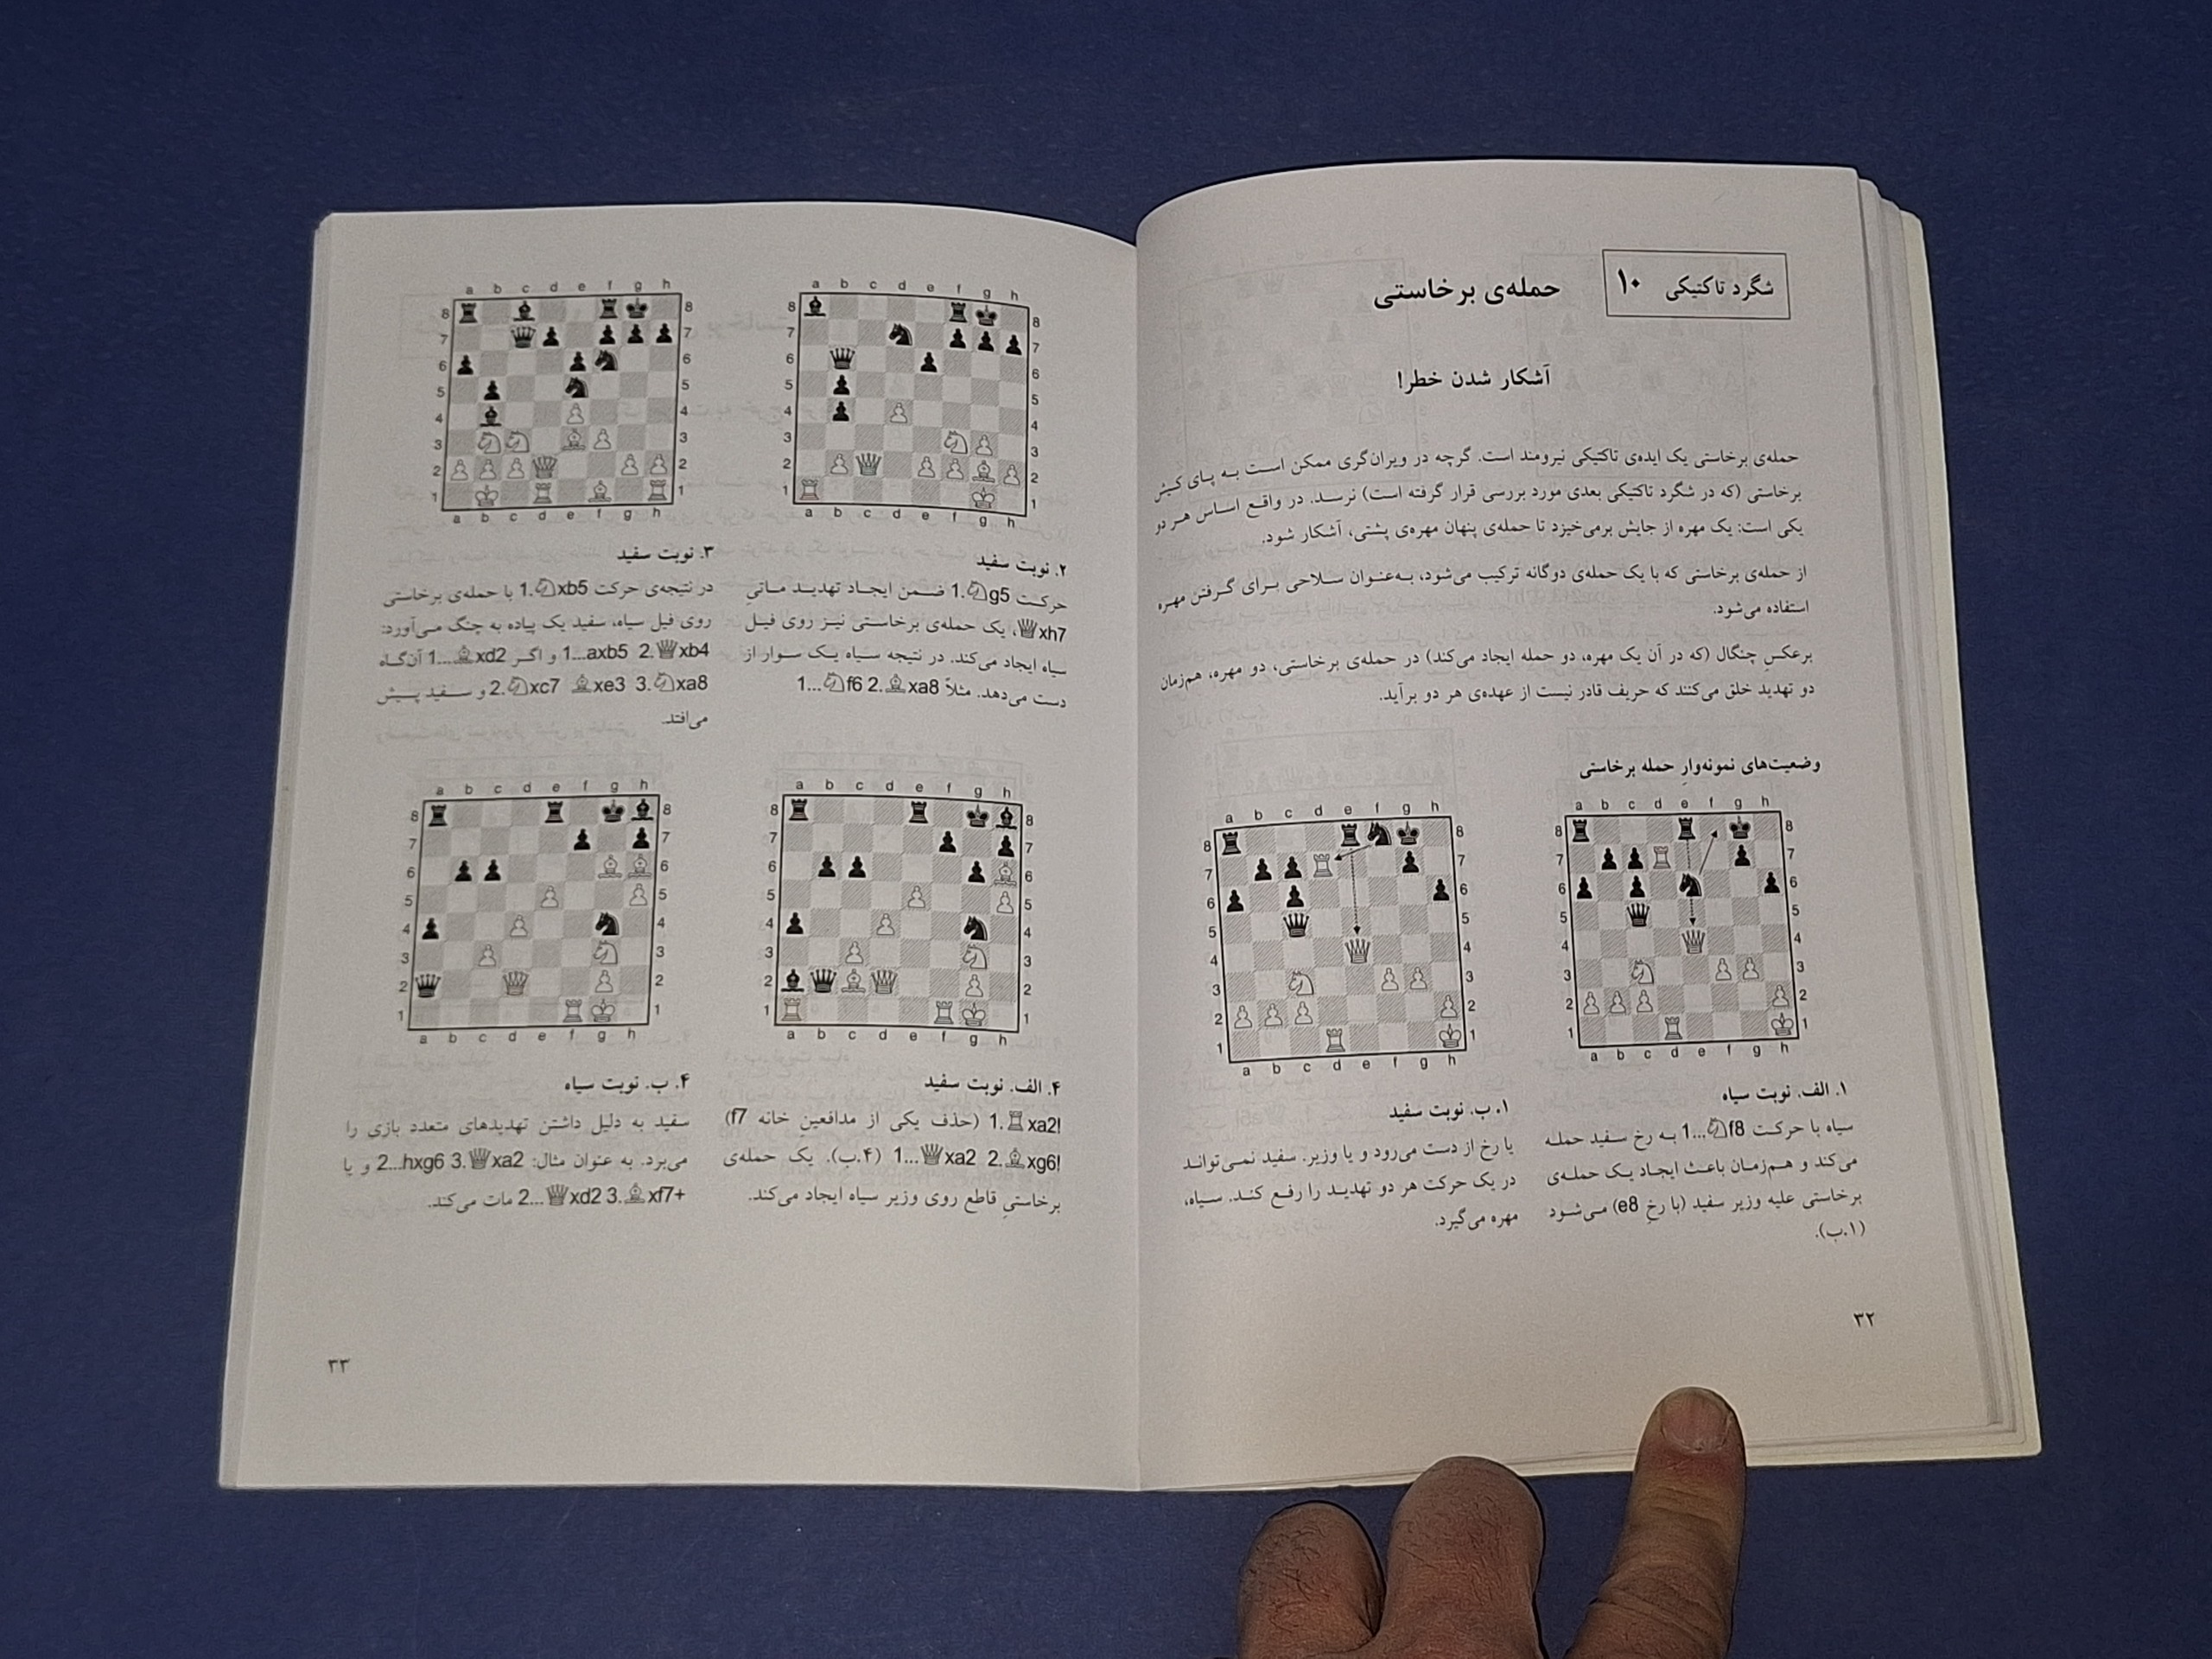 شگرد تاکتیکی ۱۰
حمله‌ی برخاستی
آشکار شدن خطر!
حمله‌ی برخاستی یک ایده‌ی تاکتیکی نیرومند است. گرچه در ویران‌گری ممکن است به پای کیش
برخاستی (که در شگرد تاکتیکی بعدی مورد بررسی قرار گرفته است) نرسد. در واقع اساس هر دو
یکی است: یک مهره از جایش برمی‌خیزد تا حمله‌ی پنهان مهره‌ی پشتی، آشکار شود.
از حمله‌ی برخاستی که با یک حمله‌ی دوگانه ترکیب می‌شود، به‌عنوان سلاحی برای گرفتن مهره
استفاده می‌شود.
برعکسِ چنگال (که در آن یک مهره، دو حمله ایجاد می‌کند) در حمله‌ی برخاستی، دو مهره، هم‌زمان
دو تهدید خلق می‌کنند که حریف قادر نیست از عهده‌ی هر دو برآید.
وضعیت‌های نمونه‌وارِ حمله برخاستی
a b c d e f g h
8 8
7 7
6 6
5 5
4 4
3 3
2 2
1 1
a b c d e f g h
۱. الف. نوبت سیاه
سیاه با حرکت 1...♘f8 به رخ سفید حمله
می‌کند و هم‌زمان باعث ایجاد یک حمله‌ی
برخاستی علیه وزیر سفید (با رخِ e8) می‌شود
(۱.ب).
a b c d e f g h
8 8
7 7
6 6
5 5
4 4
3 3
2 2
1 1
a b c d e f g h
۱. ب. نوبت سفید
یا رخ از دست می‌رود و یا وزیر. سفید نمی‌تواند
در یک حرکت هر دو تهدید را رفع کند. سیاه،
مهره می‌گیرد.
۳۲
a b c d e f g h
8 8
7 7
6 6
5 5
4 4
3 3
2 2
1 1
a b c d e f g h
۲. نوبت سفید
حرکت 1.♘g5 ضمن ایجاد تهدید ماتیِ
♕xh7، یک حمله‌ی برخاستی نیز روی فیل
سیاه ایجاد می‌کند. در نتیجه سیاه یک سوار از
دست می‌دهد. مثلاً 1...♘f6 2.♗xa8
a b c d e f g h
8 8
7 7
6 6
5 5
4 4
3 3
2 2
1 1
a b c d e f g h
۳. نوبت سفید
در نتیجه‌ی حرکت 1.♘xb5 با حمله‌ی برخاستی
روی فیل سیاه، سفید یک پیاده به چنگ می‌آورد:
1...axb5 2.♕xb4 و اگر 1...♗xd2 آن‌گاه
2.♘xc7 ♗xe3 3.♘xa8 و سفید پیش
می‌افتد.
a b c d e f g h
8 8
7 7
6 6
5 5
4 4
3 3
2 2
1 1
a b c d e f g h
۴. الف. نوبت سفید
1.♖xa2! (حذف یکی از مدافعینِ خانه f7)
1...♕xa2 2.♗xg6! (۴.ب). یک حمله‌ی
برخاستیِ قاطع روی وزیر سیاه ایجاد می‌کند.
a b c d e f g h
8 8
7 7
6 6
5 5
4 4
3 3
2 2
1 1
a b c d e f g h
۴. ب. نوبت سیاه
سفید به دلیل داشتن تهدیدهای متعدد بازی را
می‌برد. به عنوان مثال: 2...hxg6 3.♕xa2 و یا
2...♕xd2 3.♗xf7+ مات می‌کند.
۳۳